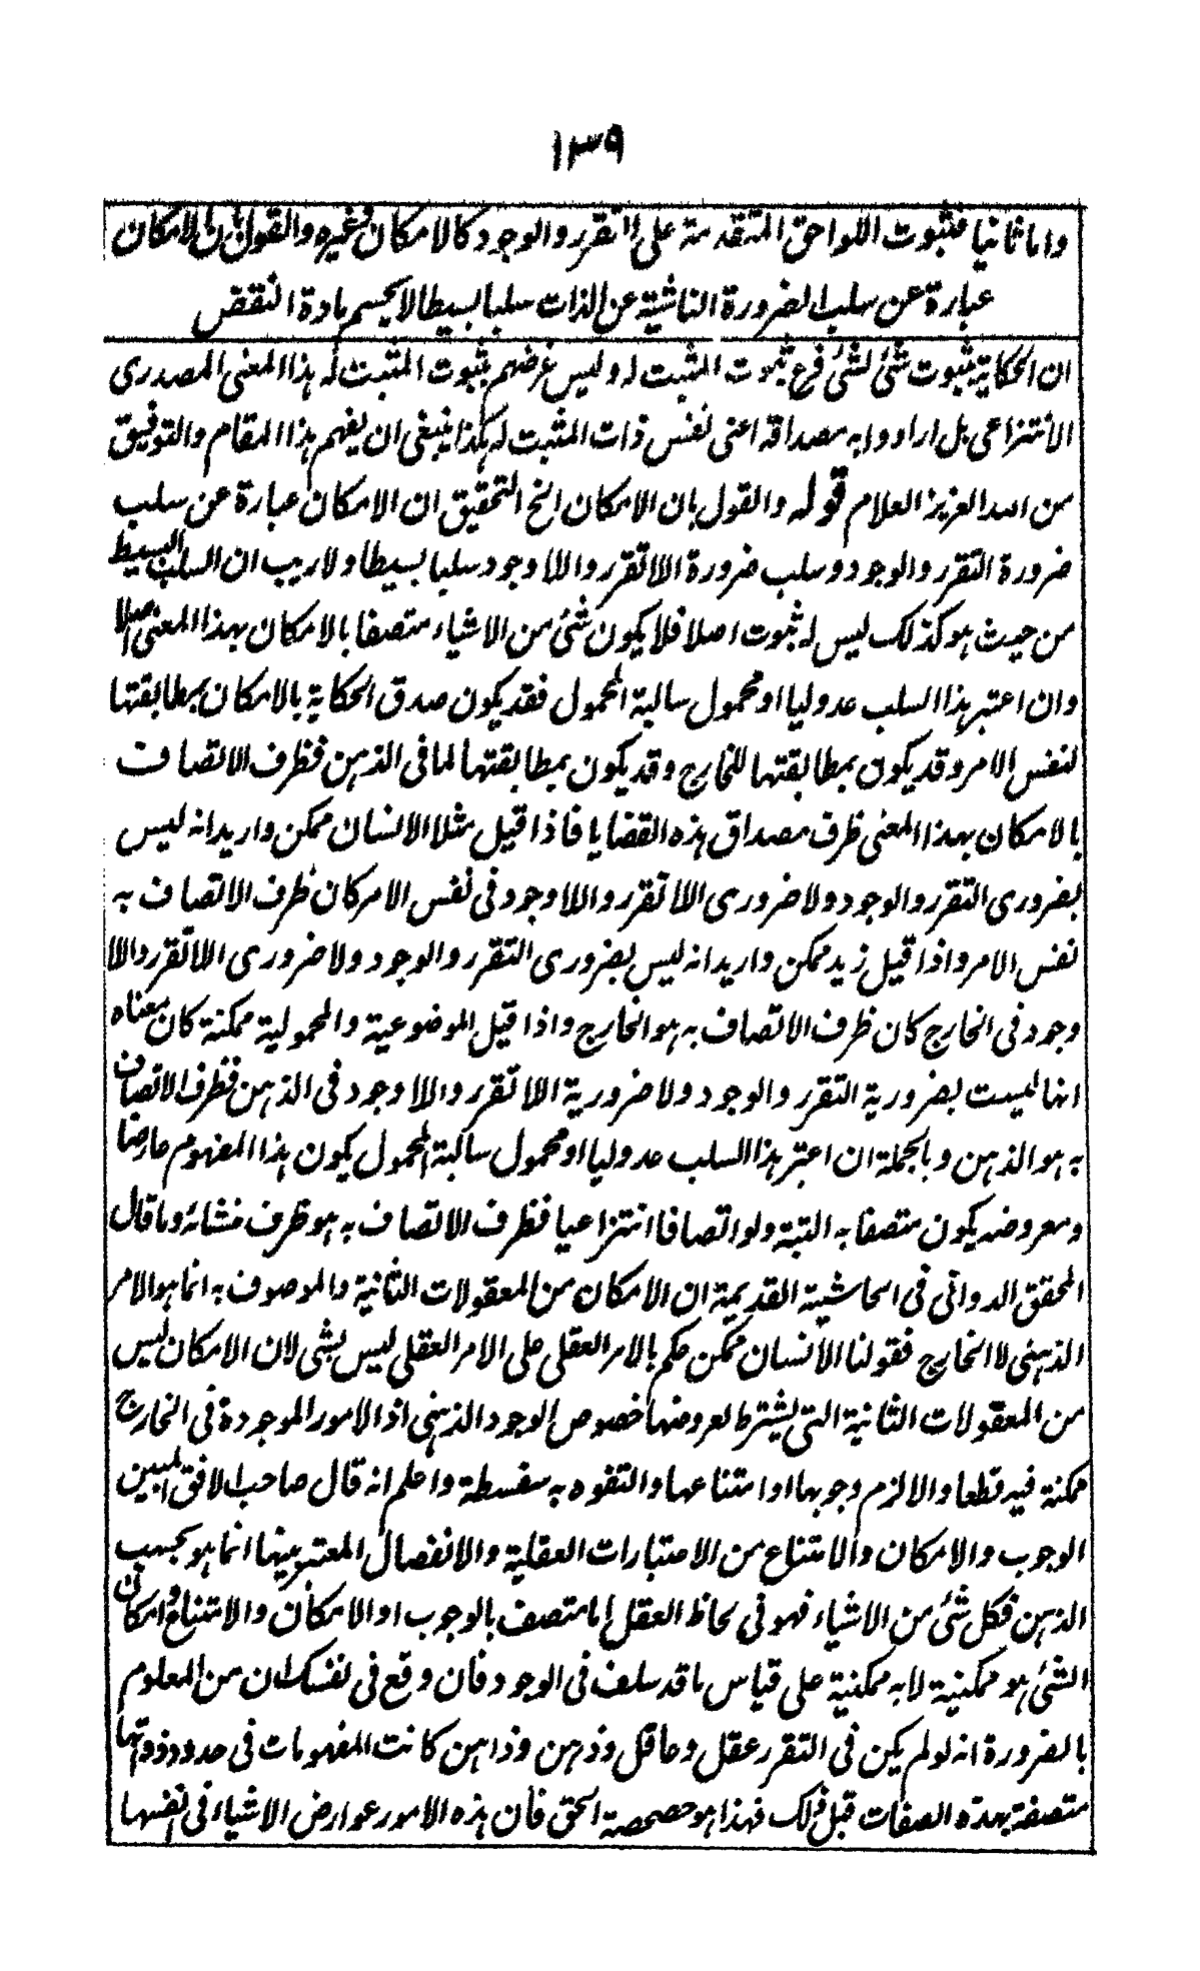 ١٣٩
واما ثانيا فثبوت اللواحق المتقدمة على التقرر والوجود كالامكان وغيره والقول بان الامكان
عبارة عن سلب الضرورة الناشية عن الذات سلبا بسيطا لا يحسم مادة النقض
ان الحكاية بثبوت شئ لشئ فرع ثبوت المثبت له وليس غرضهم بثبوت المثبت له هذا المعنى المصدرى
الانتزاعى بل ارادوا به مصداقه اعنى نفس ذات المثبت له هكذا ينبغى ان يفهم هذا المقام والتوفيق
من الله العزيز العلام قوله والقول بان الامكان الخ التحقيق ان الامكان عبارة عن سلب
ضرورة التقرر والوجود وسلب ضرورة اللاتقرر واللاوجود سلبا بسيطا ولا ريب ان السلب البسيط
من حيث هو كذلك ليس له ثبوت اصلا فلا يكون شئ من الاشياء متصفا بالامكان بهذا المعنى اصلا
وان اعتبر هذا السلب عدوليا او محمول سالبة المحمول فقد يكون صدق الحكاية بالامكان بمطابقتها
لنفس الامر وقد يكون بمطابقتها للخارج وقد يكون بمطابقتها لما فى الذهن فظرف الاتصاف
بالامكان بهذا المعنى ظرف مصداق هذه القضايا فاذا قيل مثلا الانسان ممكن واريد انه ليس
بضرورى التقرر والوجود ولا ضرورى اللاتقرر واللاوجود فى نفس الامر كان ظرف الاتصاف به
نفس الامر واذا قيل زيد ممكن واريد انه ليس بضرورى التقرر والوجود ولا ضرورى اللاتقرر واللا
وجود فى الخارج كان ظرف الاتصاف به هو الخارج واذا قيل الموضوعية والمحمولية ممكنة كان معناه
انها ليست بضرورية التقرر والوجود ولا ضرورية اللاتقرر واللاوجود فى الذهن فظرف الاتصاف
به هو الذهن وبالجملة ان اعتبر هذا السلب عدوليا او محمول سالبة المحمول يكون هذا المفهوم عارضا
ومعروضه يكون متصفا به البتة ولو اتصافا انتزاعيا فظرف الاتصاف به هو ظرف منشائه وما قال
المحقق الدوانى فى الحاشية القديمة ان الامكان من المعقولات الثانية والموصوف به انما هو الامر
الذهنى لا الخارج فقولنا الانسان ممكن حكم بالامر العقلى على الامر العقلى ليس بشئ لان الامكان ليس
من المعقولات الثانية التى يشترط لعروضها خصوص الوجود الذهنى اذ الامور الموجودة فى الخارج
ممكنة فيه قطعا والا لزم وجوبها او امتناعها والتفوه به سفسطة واعلم انه قال صاحب الافق المبين
الوجوب والامكان والامتناع من الاعتبارات العقلية والانفصال المعتبر بينها انما هو بحسب
الذهن فكل شئ من الاشياء فهو فى لحاظ العقل اما متصف بالوجوب او الامكان والامتناع وامكان
الشئ هو ممكنية لا به ممكنية على قياس ما قد سلف فى الوجود فان وقع فى نفسك ان من المعلوم
بالضرورة انه لو لم يكن فى التقرر عقل وعاقل وذهن وذاهن كانت المفهومات فى حدود ذواتها
متصفة بهذه الصفات قبل ذلك فهذا هو حصحصة الحق فان هذه الامور عوارض الاشياء فى انفسها